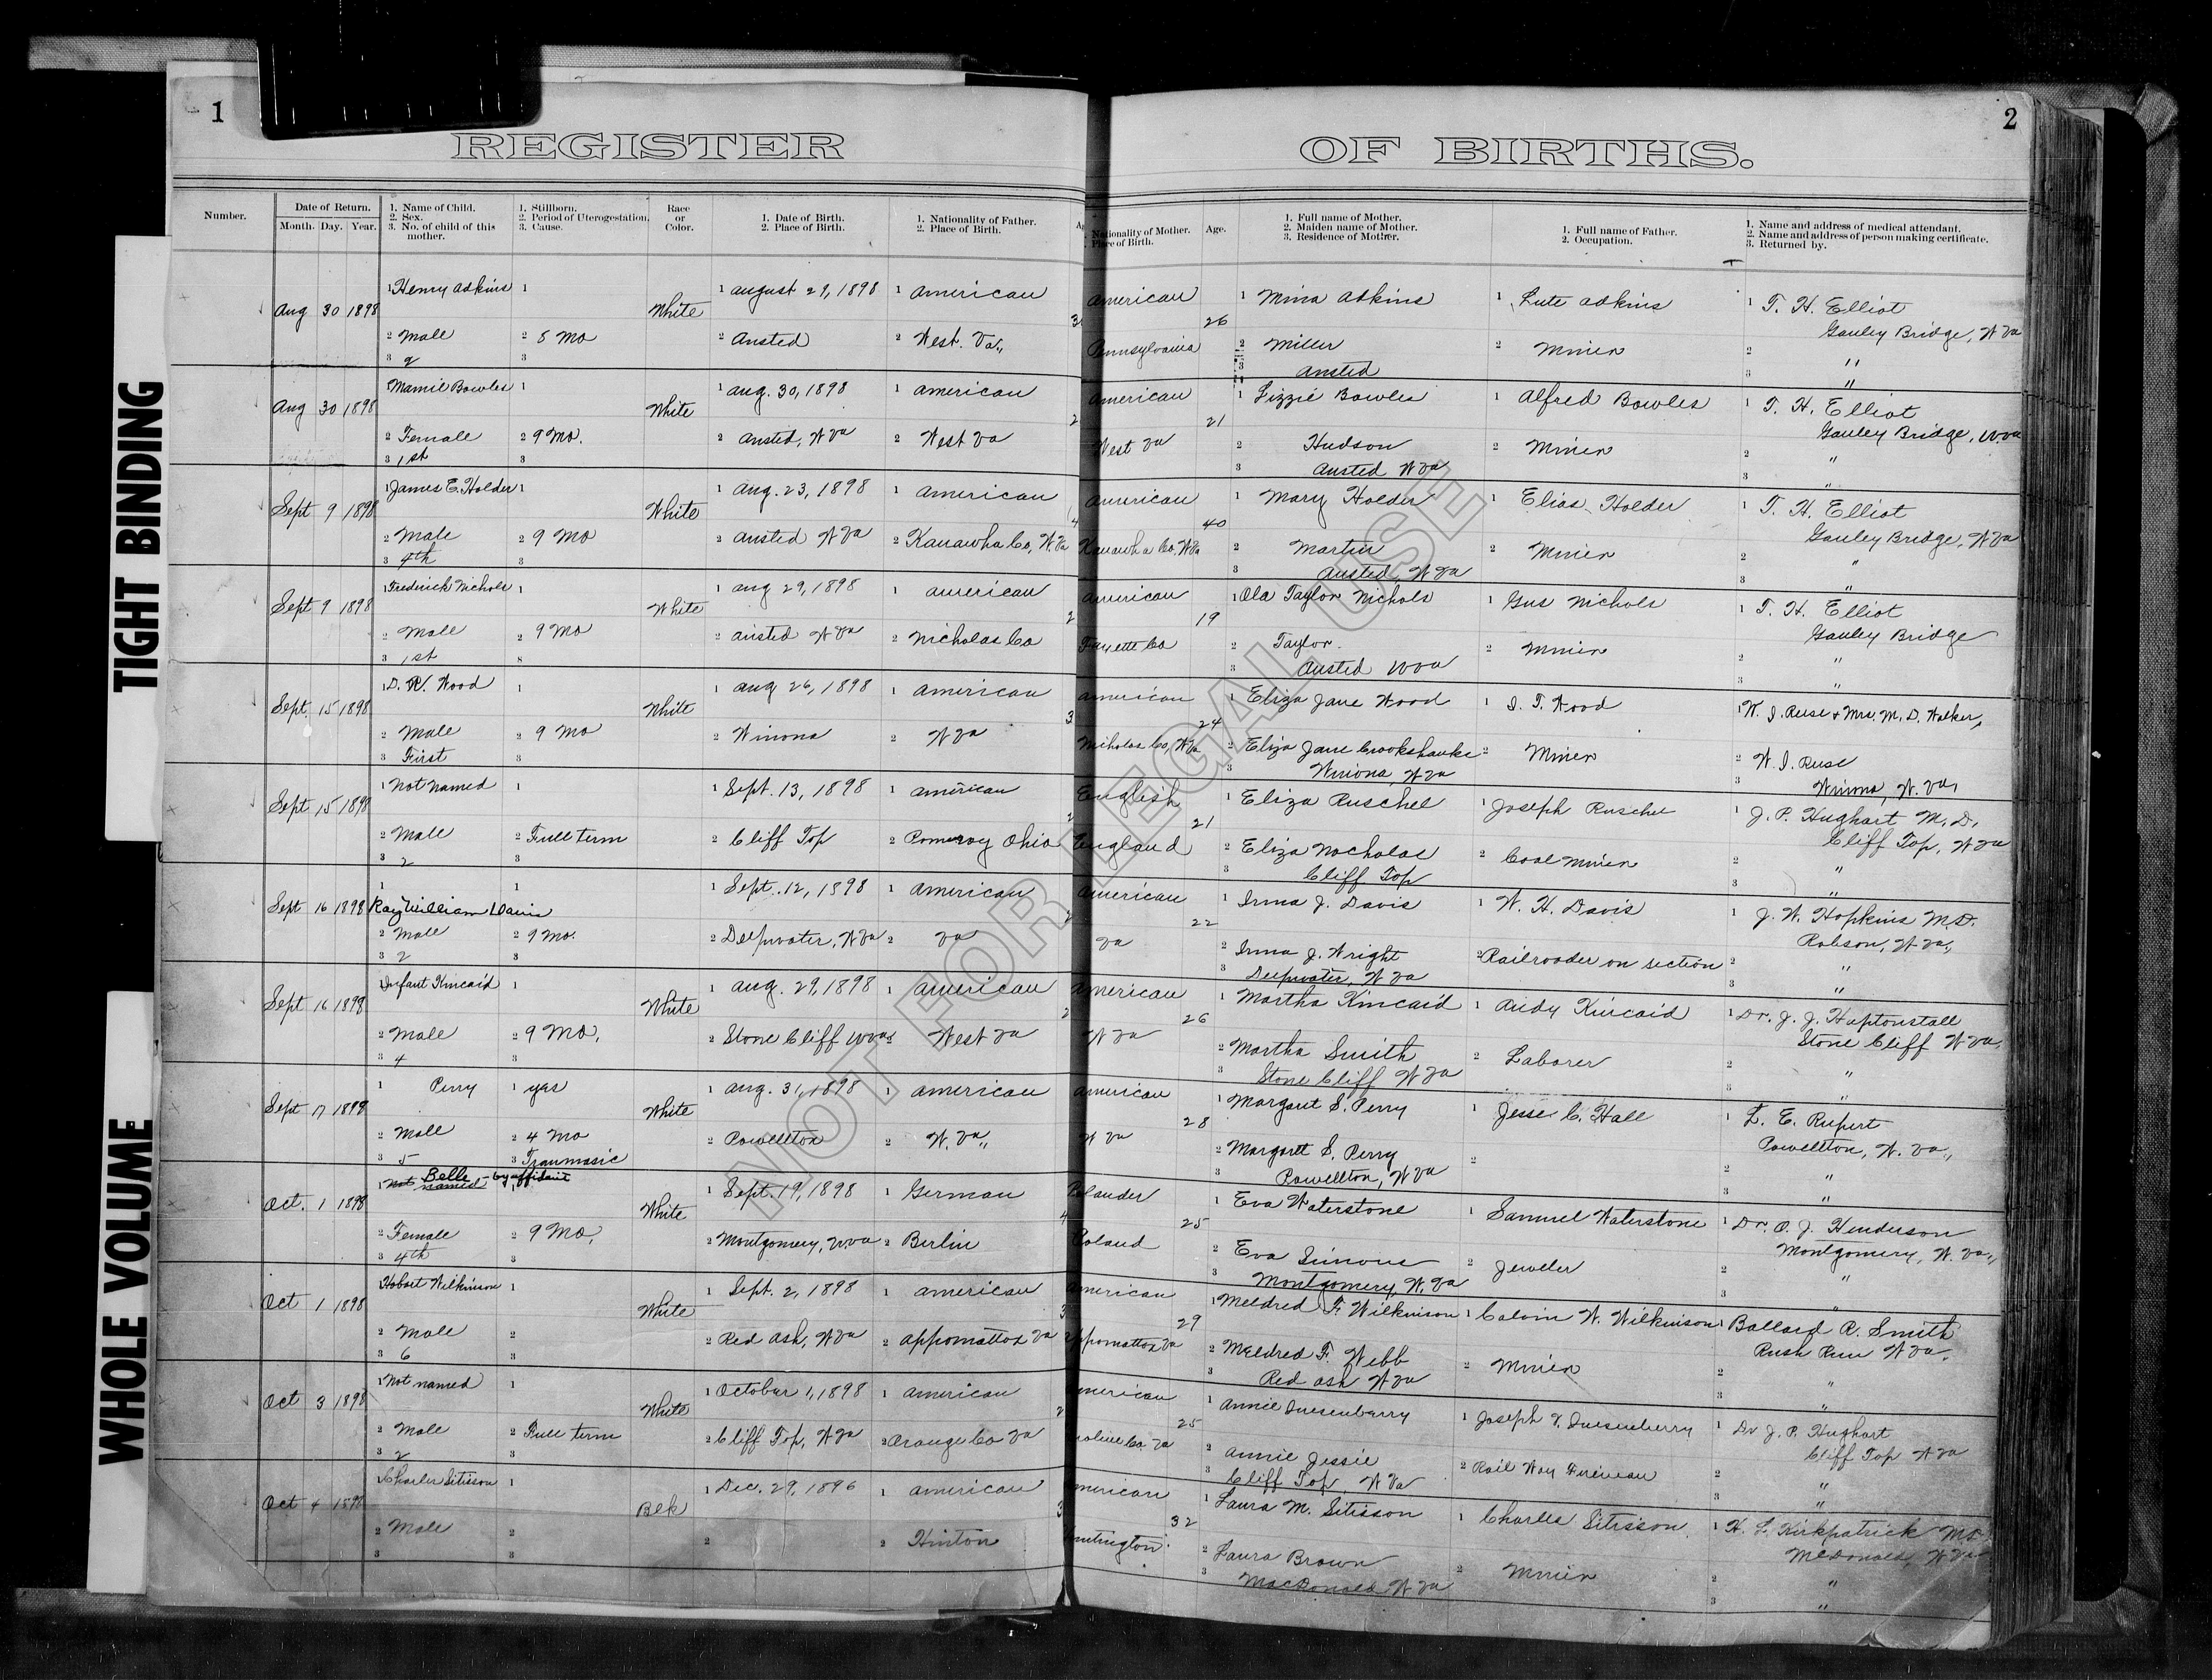 TIGHT BINDING
WHOLE VOLUME
NOT FOR LEGAL USE
1
REGISTER OF BIRTHS.
2
Number.
Date of Return.
Month. Day. Year.
1. Name of Child.
2. Sex.
3. No. of child of this mother.
1. Stillborn.
2. Period of Uterogestation.
3. Cause.
Race or Color.
1. Date of Birth.
2. Place of Birth.
1. Nationality of Father.
2. Place of Birth.
Nationality of Mother.
Place of Birth.
Age.
1. Full name of Mother.
2. Maiden name of Mother.
3. Residence of Mother.
1. Full name of Father.
2. Occupation.
1. Name and address of medical attendant.
2. Name and address of person making certificate.
3. Returned by.
Aug 30 1898 1 Henry Adkins 1 White 1 August 29, 1898 1 American American 26 1 Mina Adkins 1 Lute Adkins 1 T. H. Elliot
Gauley Bridge, W Va
2 Male 2 8 Mo 2 Ansted 2 West. Va,, Pennsylvania 2 Miller 2 Miner 2 "
3 2 3 3 Ansted 3 "
Aug 30 1898 1 Mamie Bowles 1 White 1 Aug. 30, 1898 1 American American 21 1 Lizzie Bowles 1 Alfred Bowles 1 T. H. Elliot
Gauley Bridge, W Va
2 Female 2 9 Mo. 2 Ansted, W Va 2 West Va West Va 2 Hudson 2 Miner 2 "
3 1st 3 3 Ansted W Va 3 "
Sept 9 1898 1 James E. Holder 1 White 1 Aug. 23, 1898 1 American American 40 1 Mary Holder 1 Elias Holder 1 T. H. Elliot
Gauley Bridge, W Va
2 Male 2 9 Mo 2 Ansted W Va 2 Kanawha Co, W. Va Kanawha Co, W Va 2 Martin 2 Miner 2 "
3 4th 3 3 Ansted, W Va 3 "
Sept 9 1898 1 Frederick Nichols 1 White 1 Aug 29, 1898 1 American American 19 1 Ola Taylor Nichols 1 Gus Nichols 1 T. H. Elliot
Gauley Bridge
2 Male 2 9 Mo 2 Ansted W Va 2 Nicholas Co Fayette Co 2 Taylor 2 Miner 2 "
3 1st 3 3 Ansted W Va 3 "
Sept. 15 1898 1 D. R. Wood 1 White 1 Aug 26, 1898 1 American American 24 1 Eliza Jane Wood 1 J. T. Wood 1 W. J. Ruse & Mrs. M. D. Walker,
2 Male 2 9 Mo 2 Winona 2 W Va Nicholas Co, W Va 2 Eliza Jane Crookshanks 2 Miner 2 W. J. Ruse
3 First 3 3 Winona, W Va 3 Winona, W. Va,
Sept 15 1898 1 Not named 1 1 Sept. 13, 1898 1 American English 21 1 Eliza Ruschel 1 Joseph Ruschel 1 J. P. Hughart M. D.
Cliff Top, W Va
2 Male 2 Full term 2 Cliff Top 2 Pomeroy Ohio England 2 Eliza Nocholas 2 Coal Miner 2 "
3 2 3 3 Cliff Top 3 "
Sept 16 1898 1 Ray William Davis 1 1 Sept. 12, 1898 1 American American 22 1 Irma J. Davis 1 W. H. Davis 1 J. W. Hopkins M.D.
Robson, W Va,,
2 Male 2 9 Mo. 2 Deepwater, W Va 2 Va Va 2 Irma J. Wright 2 Railroader on section 2 "
3 2 3 3 Deepwater, W Va 3 "
Sept 16 1898 1 Infant Kincaid 1 White 1 Aug. 29, 1898 1 American American 26 1 Martha Kincaid 1 Andy Kincaid 1 Dr. J. J. Huptonstall
Stone Cliff W Va,
2 Male 2 9 Mo. 2 Stone Cliff W Va 2 West Va W Va 2 Martha Smith 2 Laborer 2 "
3 4 3 3 Stone Cliff W Va 3 "
Sept 17 1898 1 Perry 1 yes White 1 Aug. 31, 1898 1 American American 28 1 Margaret S. Perry 1 Jesse C. Hall 1 L. E. Rupert
Powellton, W. Va,,
2 Male 2 4 Mo 2 Powellton 2 W. Va,, W Va 2 Margaret S. Perry 2 2 "
3 5 3 Traumasic 3 Powellton, W Va 3 "
Oct. 1 1898 1 Not named Belle - by affidavit White 1 Sept. 19, 1898 1 German Polander 25 1 Eva Waterstone 1 Samuel Waterstone 1 Dr. O. J. Henderson
Montgomery, W. Va,,
2 Female 2 9 Mo. 2 Montgomery, W Va 2 Berlin Poland 2 Eva Simons 2 Jeweler 2 "
3 4th 3 3 Montgomery, W. Va 3 "
Oct 1 1898 1 Hobart Wilkinson 1 White 1 Sept. 2, 1898 1 American American 29 1 Meldred F. Wilkinson 1 Calvin W. Wilkinson 1 Ballard R. Smith
Rush Run W Va.
2 Male 2 2 Red Ash, W Va 2 Appomattox Va Appomattox Va 2 Meldred F. Webb 2 Miner 2 "
3 6 3 3 Red Ash W Va 3 "
Oct 3 1898 1 Not named 1 White 1 October 1, 1898 1 American American 25 1 Annie Duesenberry 1 Joseph V. Duesenberry 1 Dr J. P. Hughart
Cliff Top W Va
2 Male 2 Full term 2 Cliff Top, W Va 2 Orange Co Va Caroline Co Va 2 Annie Jessie 2 Rail Way Fireman 2 "
3 2 3 3 Cliff Top, W Va 3 "
Oct 4 1898 1 Charles Sitisson 1 Blk 1 Dec. 29, 1896 1 American American 32 1 Laura M. Sitisson 1 Charles Sitisson 1 H. L. Kirkpatrick MD
McDonald, W Va
2 Male 2 2 2 Hinton Huntington 2 Laura Brown 2 Miner 2 "
3 3 3 MacDonald, W Va 3 "